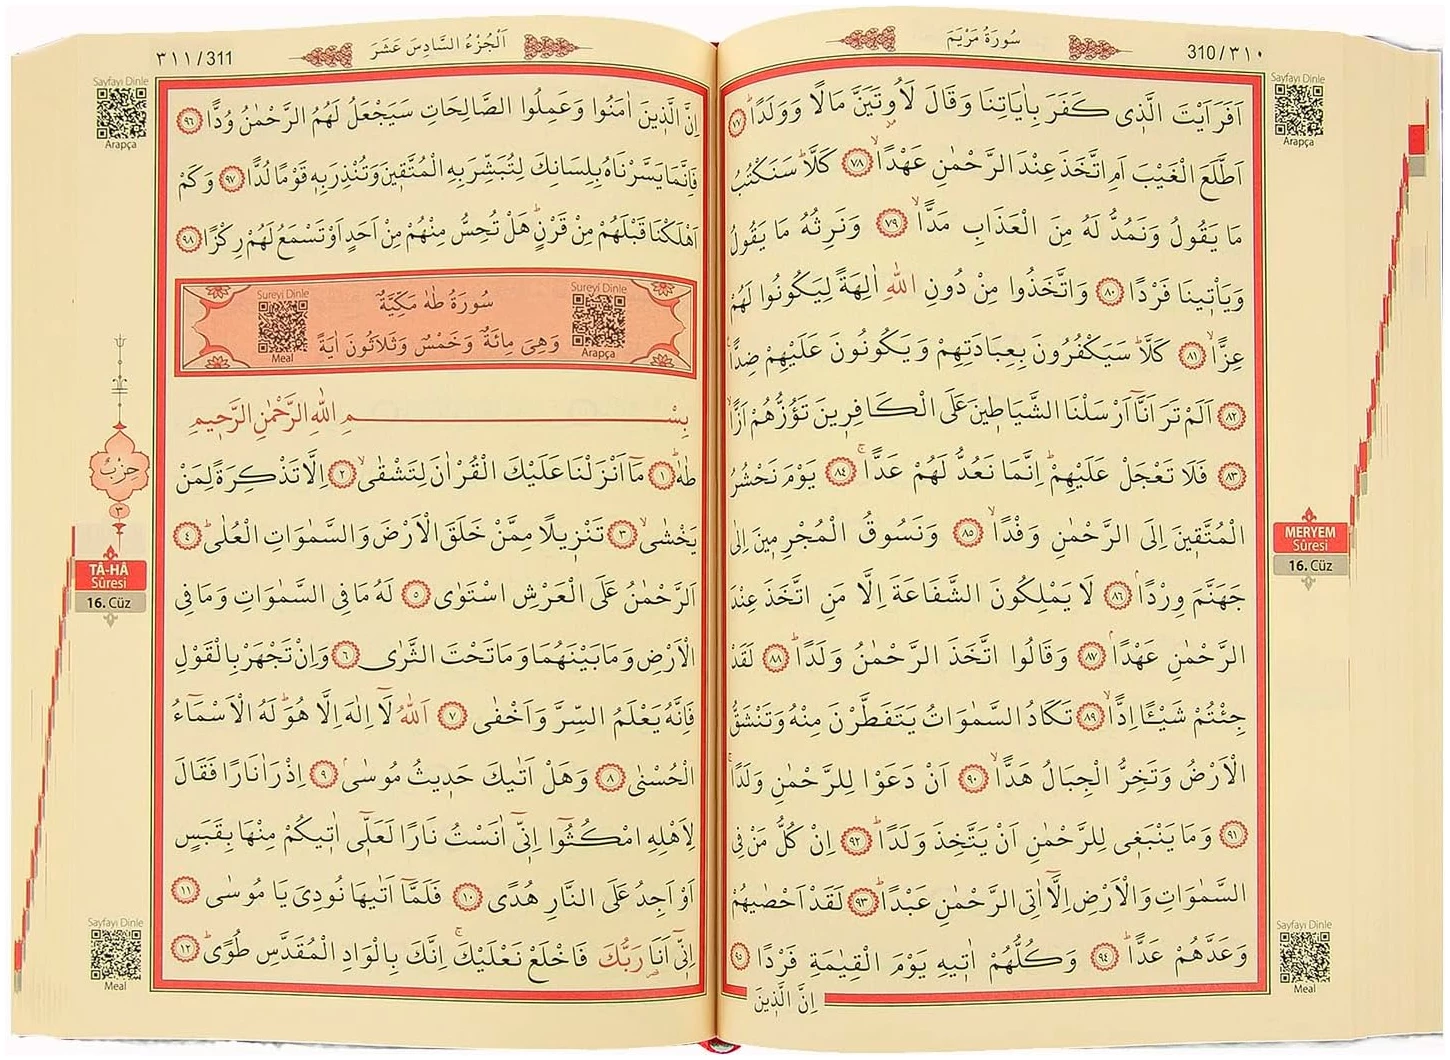 310/٣١٠
سُورَةُ مَرْيَمَ
Sayfayı Dinle
Arapça
اَفَرَاَيْتَ الَّذ۪ي كَفَرَ بِاٰيَاتِنَا وَقَالَ لَاُو۫تَيَنَّ مَالًا وَوَلَدًاۜ ﴿٧٧﴾
اَطَّلَعَ الْغَيْبَ اَمِ اتَّخَذَ عِنْدَ الرَّحْمٰنِ عَهْدًاۙ ﴿٧٨﴾ كَلَّاۜ سَنَكْتُبُ
مَا يَقُولُ وَنَمُدُّ لَهُ مِنَ الْعَذَابِ مَدًّاۙ ﴿٧٩﴾ وَنَرِثُهُ مَا يَقُولُ
وَيَأْت۪ينَا فَرْدًا ﴿٨٠﴾ وَاتَّخَذُوا مِنْ دُونِ اللّٰهِ اٰلِهَةً لِيَكُونُوا لَهُمْ
عِزًّاۙ ﴿٨١﴾ كَلَّاۜ سَيَكْفُرُونَ بِعِبَادَتِهِمْ وَيَكُونُونَ عَلَيْهِمْ ضِدًّا۟
﴿٨٢﴾ اَلَمْ تَرَ اَنَّٓا اَرْسَلْنَا الشَّيَاط۪ينَ عَلَى الْكَافِر۪ينَ تَؤُزُّهُمْ اَزًّاۙ
﴿٨٣﴾ فَلَا تَعْجَلْ عَلَيْهِمْۜ اِنَّمَا نَعُدُّ لَهُمْ عَدًّاۚ ﴿٨٤﴾ يَوْمَ نَحْشُرُ
الْمُتَّق۪ينَ اِلَى الرَّحْمٰنِ وَفْدًاۙ ﴿٨٥﴾ وَنَسُوقُ الْمُجْرِم۪ينَ اِلٰى
جَهَنَّمَ وِرْدًاۢ ﴿٨٦﴾ لَا يَمْلِكُونَ الشَّفَاعَةَ اِلَّا مَنِ اتَّخَذَ عِنْدَ
الرَّحْمٰنِ عَهْدًاۢ ﴿٨٧﴾ وَقَالُوا اتَّخَذَ الرَّحْمٰنُ وَلَدًاۜ ﴿٨٨﴾ لَقَدْ
جِئْتُمْ شَيْـًٔا اِدًّاۙ ﴿٨٩﴾ تَكَادُ السَّمٰوَاتُ يَتَفَطَّرْنَ مِنْهُ وَتَنْشَقُّ
الْاَرْضُ وَتَخِرُّ الْجِبَالُ هَدًّاۙ ﴿٩٠﴾ اَنْ دَعَوْا لِلرَّحْمٰنِ وَلَدًاۚ
﴿٩١﴾ وَمَا يَنْبَغ۪ي لِلرَّحْمٰنِ اَنْ يَتَّخِذَ وَلَدًاۜ ﴿٩٢﴾ اِنْ كُلُّ مَنْ فِي
السَّمٰوَاتِ وَالْاَرْضِ اِلَّٓا اٰتِي الرَّحْمٰنِ عَبْدًاۜ ﴿٩٣﴾ لَقَدْ اَحْصٰيهُمْ
وَعَدَّهُمْ عَدًّاۜ ﴿٩٤﴾ وَكُلُّهُمْ اٰت۪يهِ يَوْمَ الْقِيٰمَةِ فَرْدًا ﴿٩٥﴾
اِنَّ الَّذ۪ينَ
MERYEM
Sûresi
16. Cüz
Sayfayı Dinle
Meal
اَلْجُزْءُ السَّادِسَ عَشَرَ
٣١١/311
Sayfayı Dinle
Arapça
اِنَّ الَّذ۪ينَ اٰمَنُوا وَعَمِلُوا الصَّالِحَاتِ سَيَجْعَلُ لَهُمُ الرَّحْمٰنُ وُدًّا ﴿٩٦﴾
فَاِنَّمَا يَسَّرْنَاهُ بِلِسَانِكَ لِتُبَشِّرَ بِهِ الْمُتَّق۪ينَ وَتُنْذِرَ بِه۪ قَوْمًا لُدًّا ﴿٩٧﴾ وَكَمْ
اَهْلَكْنَا قَبْلَهُمْ مِنْ قَرْنٍۜ هَلْ تُحِسُّ مِنْهُمْ مِنْ اَحَدٍ اَوْ تَسْمَعُ لَهُمْ رِكْزًا ﴿٩٨﴾
Sureyi Dinle
Arapça
سُورَةُ طٰهٰ مَكِّيَّةٌ
وَهِيَ مِائَةٌ وَخَمْسٌ وَثَلَاثُونَ اٰيَةً
Sureyi Dinle
Meal
بِسْمِ اللّٰهِ الرَّحْمٰنِ الرَّح۪يمِ
طٰهٰۜ ﴿١﴾ مَٓا اَنْزَلْنَا عَلَيْكَ الْقُرْاٰنَ لِتَشْقٰىۙ ﴿٢﴾ اِلَّا تَذْكِرَةً لِمَنْ
يَخْشٰىۙ ﴿٣﴾ تَنْز۪يلًا مِمَّنْ خَلَقَ الْاَرْضَ وَالسَّمٰوَاتِ الْعُلٰىۜ ﴿٤﴾
اَلرَّحْمٰنُ عَلَى الْعَرْشِ اسْتَوٰى ﴿٥﴾ لَهُ مَا فِي السَّمٰوَاتِ وَمَا فِي
الْاَرْضِ وَمَا بَيْنَهُمَا وَمَا تَحْتَ الثَّرٰى ﴿٦﴾ وَاِنْ تَجْهَرْ بِالْقَوْلِ
فَاِنَّهُ يَعْلَمُ السِّرَّ وَاَخْفٰى ﴿٧﴾ اَللّٰهُ لَٓا اِلٰهَ اِلَّا هُوَۜ لَهُ الْاَسْمَٓاءُ
الْحُسْنٰى ﴿٨﴾ وَهَلْ اَتٰيكَ حَد۪يثُ مُوسٰىۢ ﴿٩﴾ اِذْ رَاٰ نَارًا فَقَالَ
لِاَهْلِهِ امْكُثُٓوا اِنّ۪ٓي اٰنَسْتُ نَارًا لَعَلّ۪ٓي اٰت۪يكُمْ مِنْهَا بِقَبَسٍ
اَوْ اَجِدُ عَلَى النَّارِ هُدًى ﴿١٠﴾ فَلَمَّٓا اَتٰيهَا نُودِيَ يَا مُوسٰى ﴿١١﴾
اِنّ۪ٓي اَنَا۬ رَبُّكَ فَاخْلَعْ نَعْلَيْكَۚ اِنَّكَ بِالْوَادِ الْمُقَدَّسِ طُوًىۜ ﴿١٢﴾
حِزْبٌ
٣
TÂ-HÂ
Sûresi
16. Cüz
Sayfayı Dinle
Meal